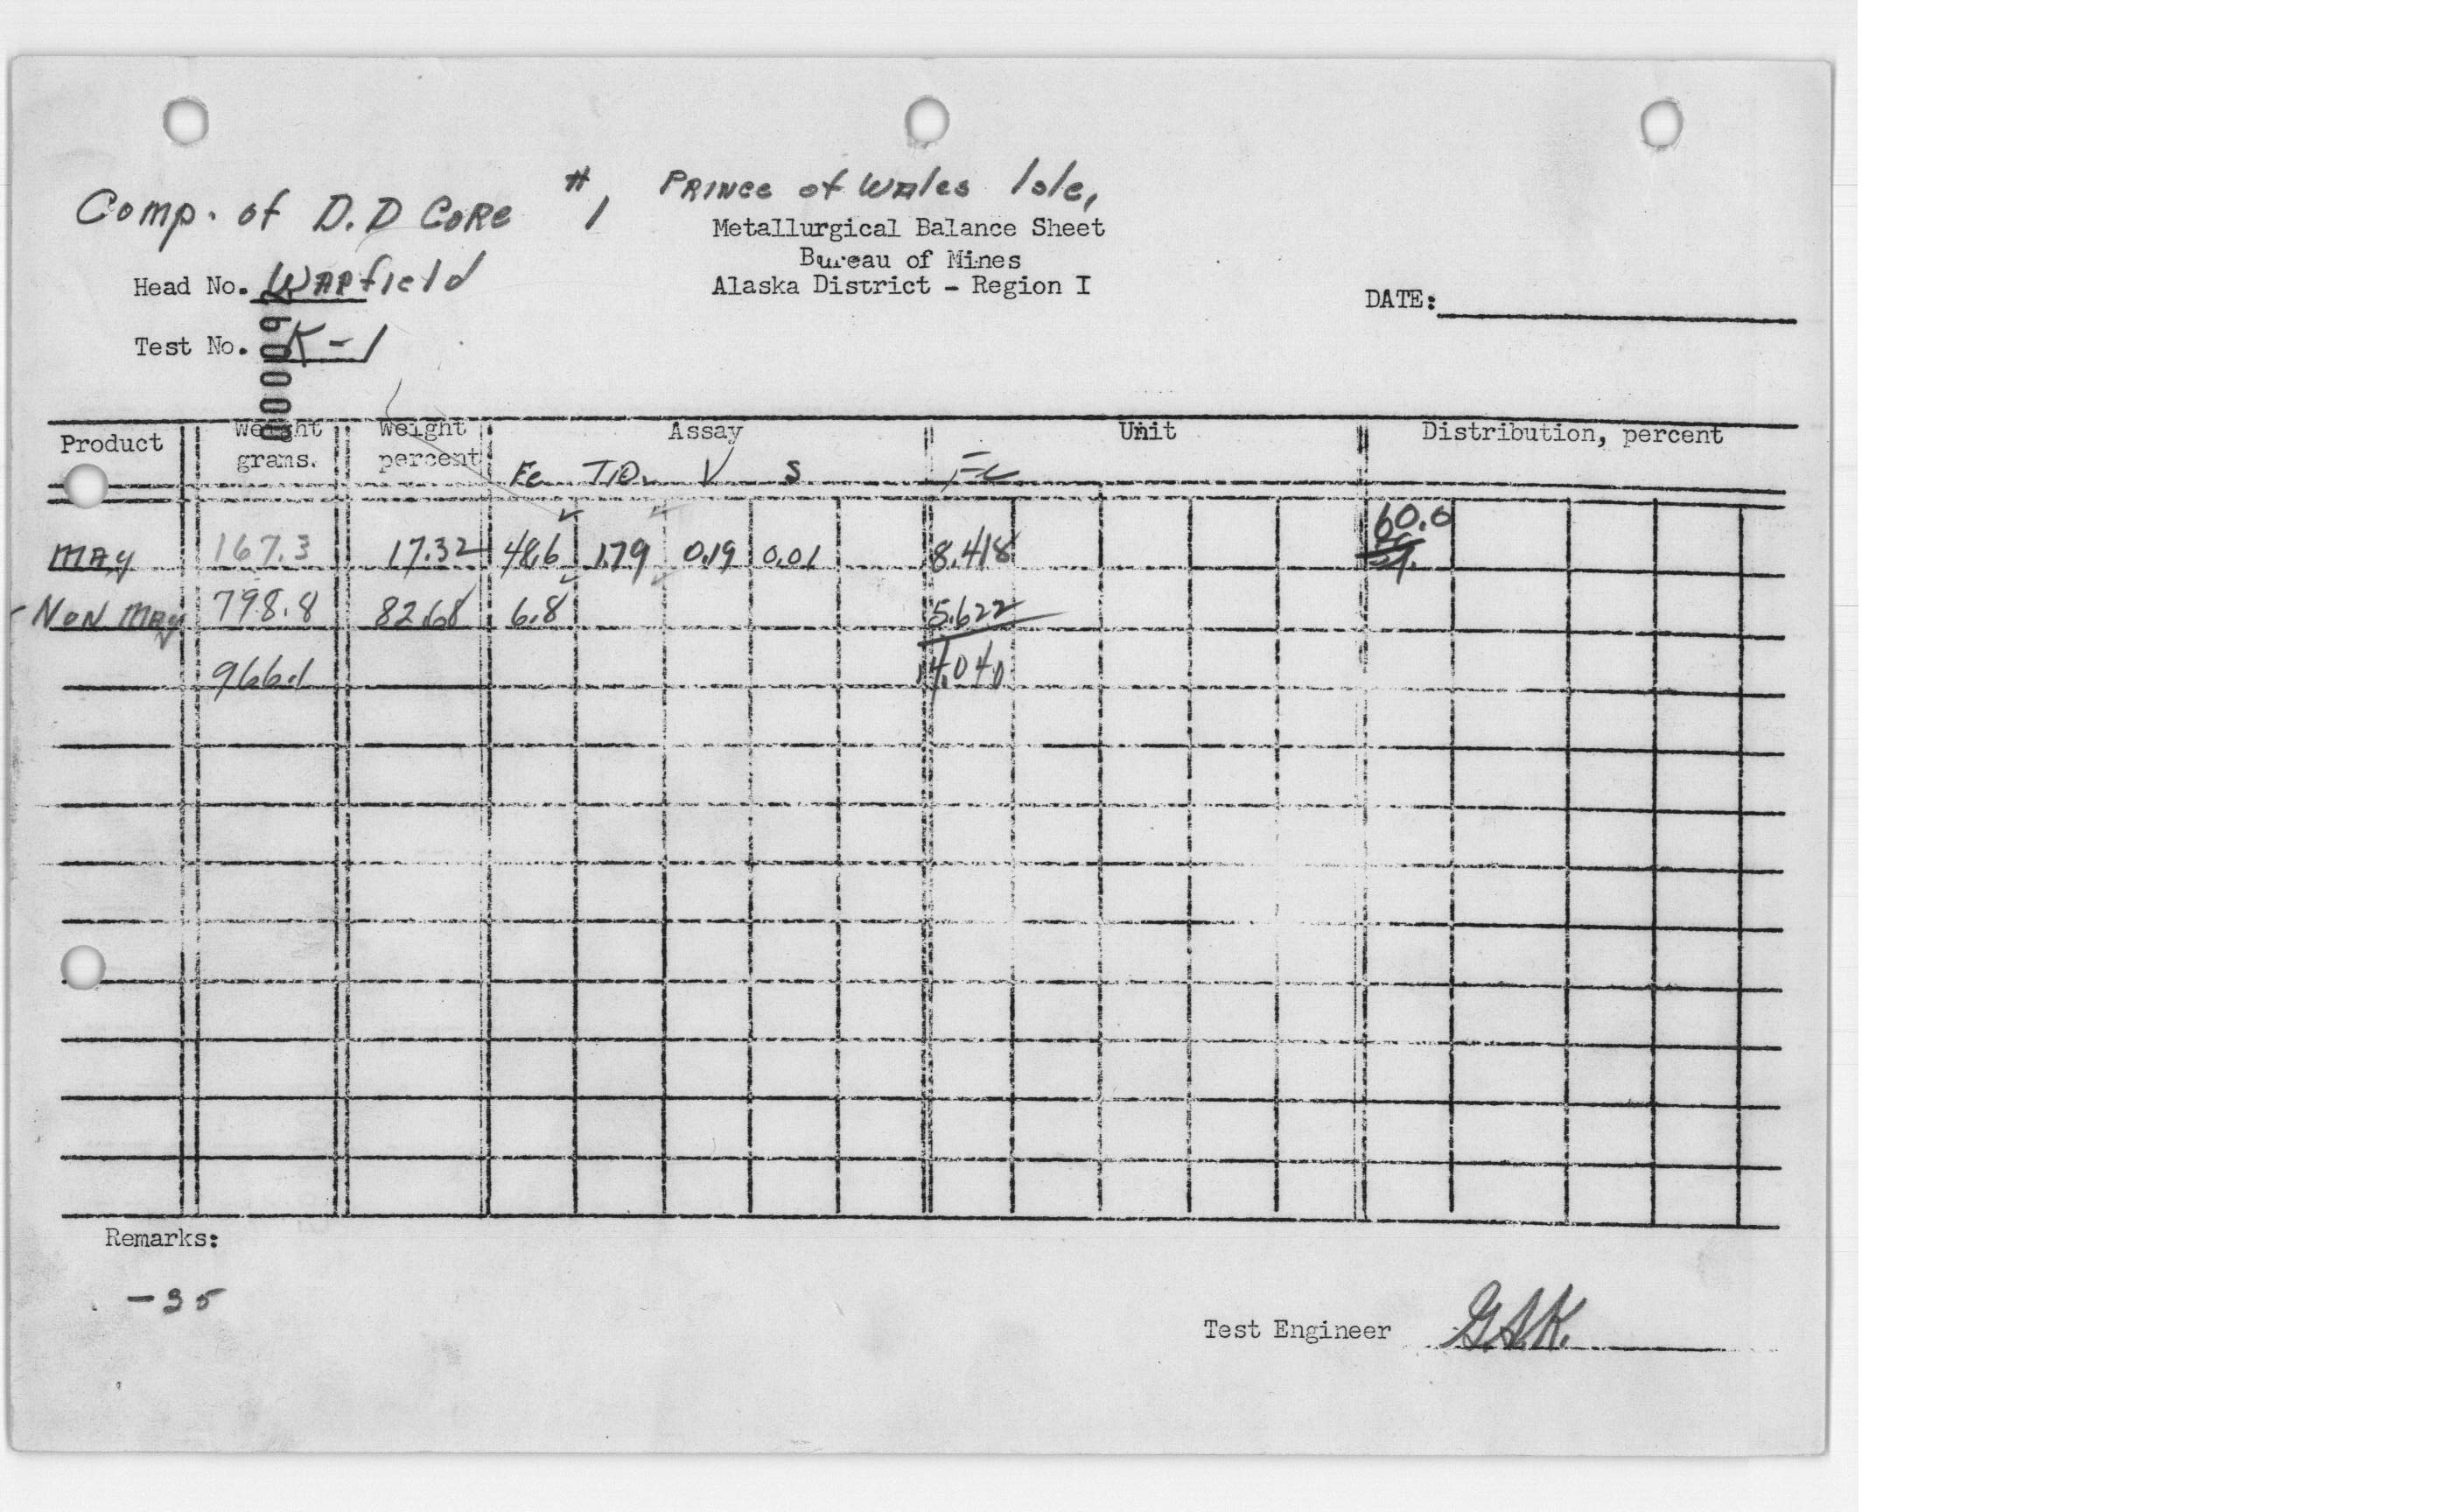 Comp. of D.D Core #1, Prince of Wales Isle,
Metallurgical Balance Sheet
Bureau of Mines
Alaska District - Region I
Head No. Warfield
DATE:
Test No. K-1
Product Weight grams. Weight percent Assay Unit Distribution, percent
Fe TiO2 V S Fe
60.0
Mag 167.3 17.32 48.6 1.79 0.19 0.01 8.418
Non Mag 798.8 82.68 6.8 5.622
966.1 14.040
Remarks:
-35
Test Engineer G.S.K.